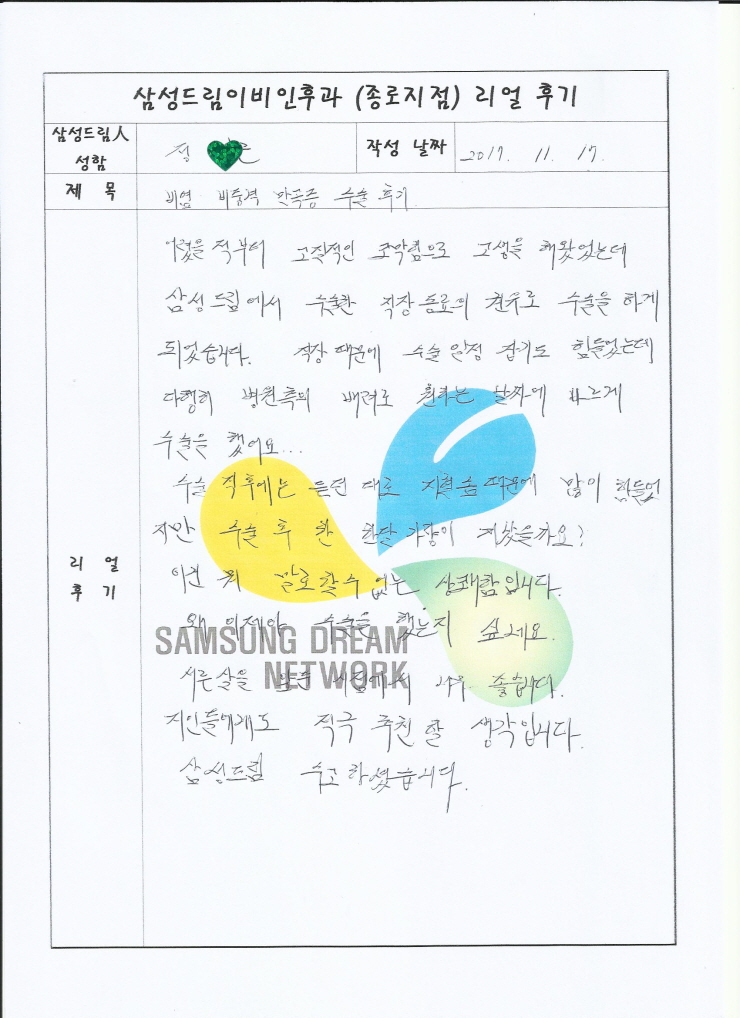 삼성드림이비인후과 (종로지점) 리얼 후기
삼성드림人 성함
작성 날짜 2017. 11. 17.
제 목 비염 비중격 만곡증 수술 후기
리 얼 후 기
어렸을 적부터 고질적인 코막힘으로 고생을 해왔었는데
삼성드림에서 수술한 직장 동료의 권유로 수술을 하게
되었습니다. 직장 때문에 수술 일정 잡기도 힘들었는데
다행히 병원측의 배려로 원하는 날짜에 빠르게
수술을 했어요...
수술 직후에는 듣던 대로 지혈솜 때문에 많이 힘들었
지만 수술 후 한 한달 가량이 지났을까요?
이건 뭐 말로 할 수 없는 상쾌함입니다.
왜 이제야 수술을 했는지 싶네요.
서른살을 앞둔 시점에서 너무 좋습니다.
지인들에게도 적극 추천할 생각입니다.
삼성드림 수고하셨습니다.
SAMSUNG DREAM
NETWORK